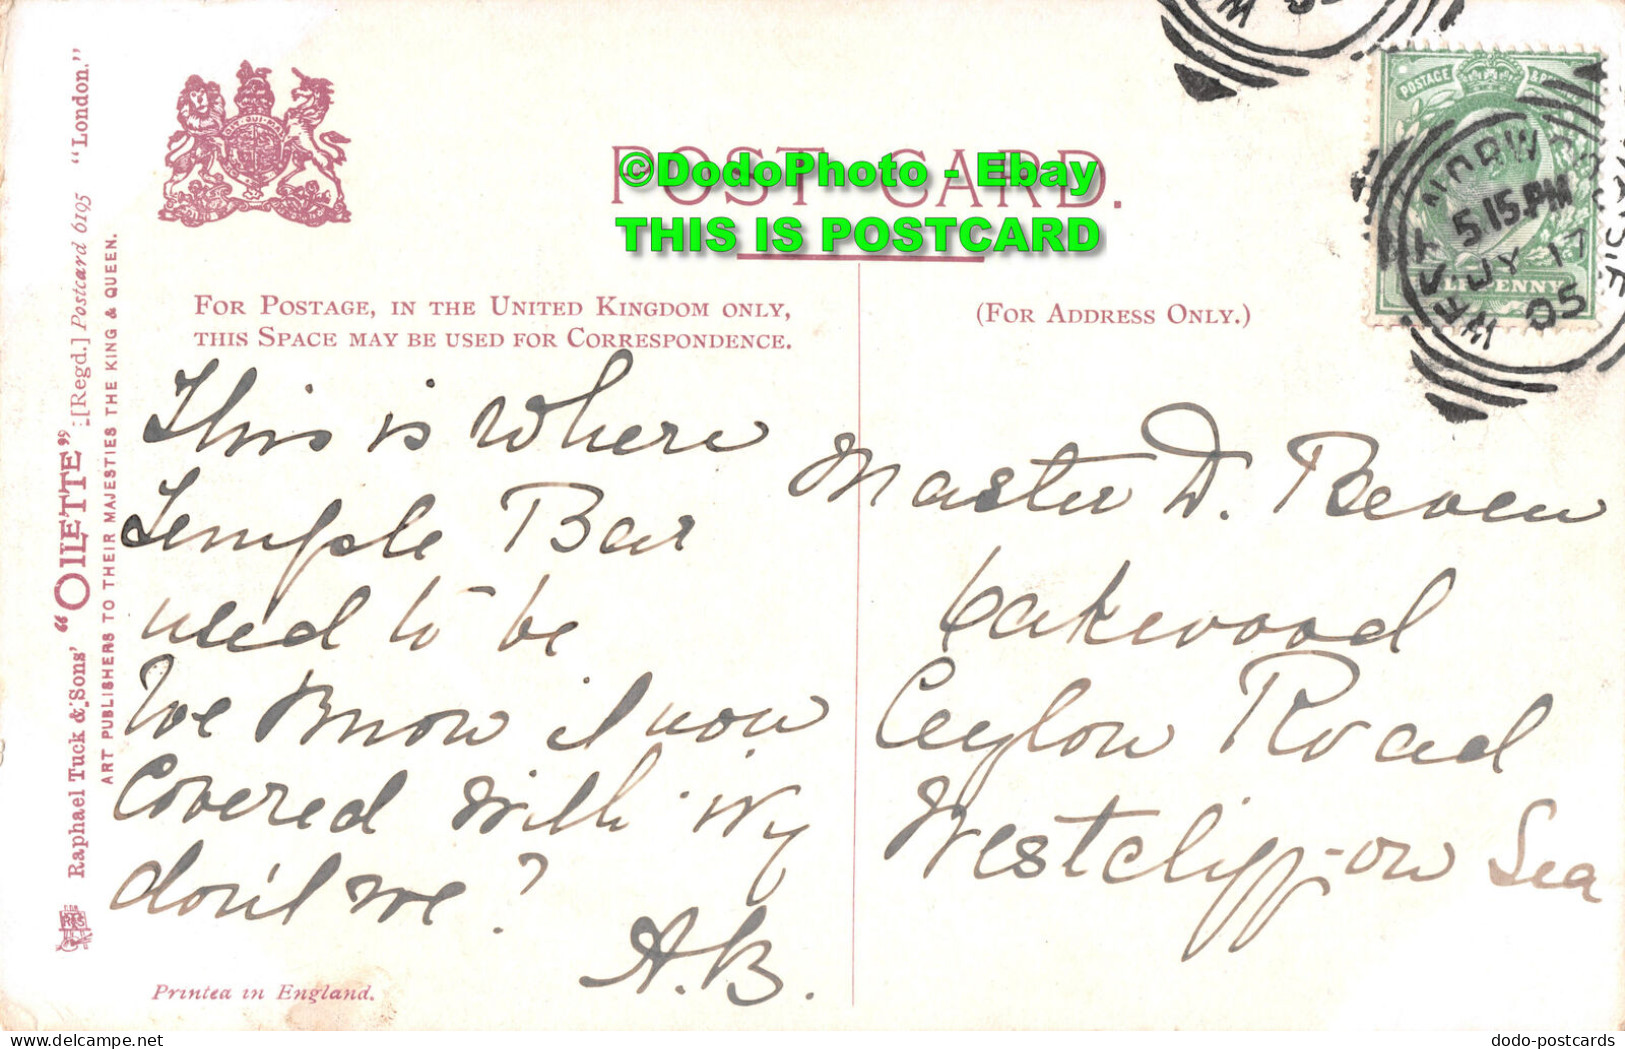 Raphael Tuck & Sons' "OILETTE" [Regd.] Postcard 6195 "London."
ART PUBLISHERS TO THEIR MAJESTIES THE KING & QUEEN.
POST CARD.
©DodoPhoto - Ebay
THIS IS POSTCARD
FOR POSTAGE, IN THE UNITED KINGDOM ONLY,
THIS SPACE MAY BE USED FOR CORRESPONDENCE.
(FOR ADDRESS ONLY.)
POSTAGE
5.15.PM
JY 17
05
This is where
Temple Bar
used to be
We know it now
Covered with ivy
don't we?
A.B.
Master D. Beven
Oakwood
Ceylon Road
Westcliff-on Sea
Printed in England.
dodo-postcards